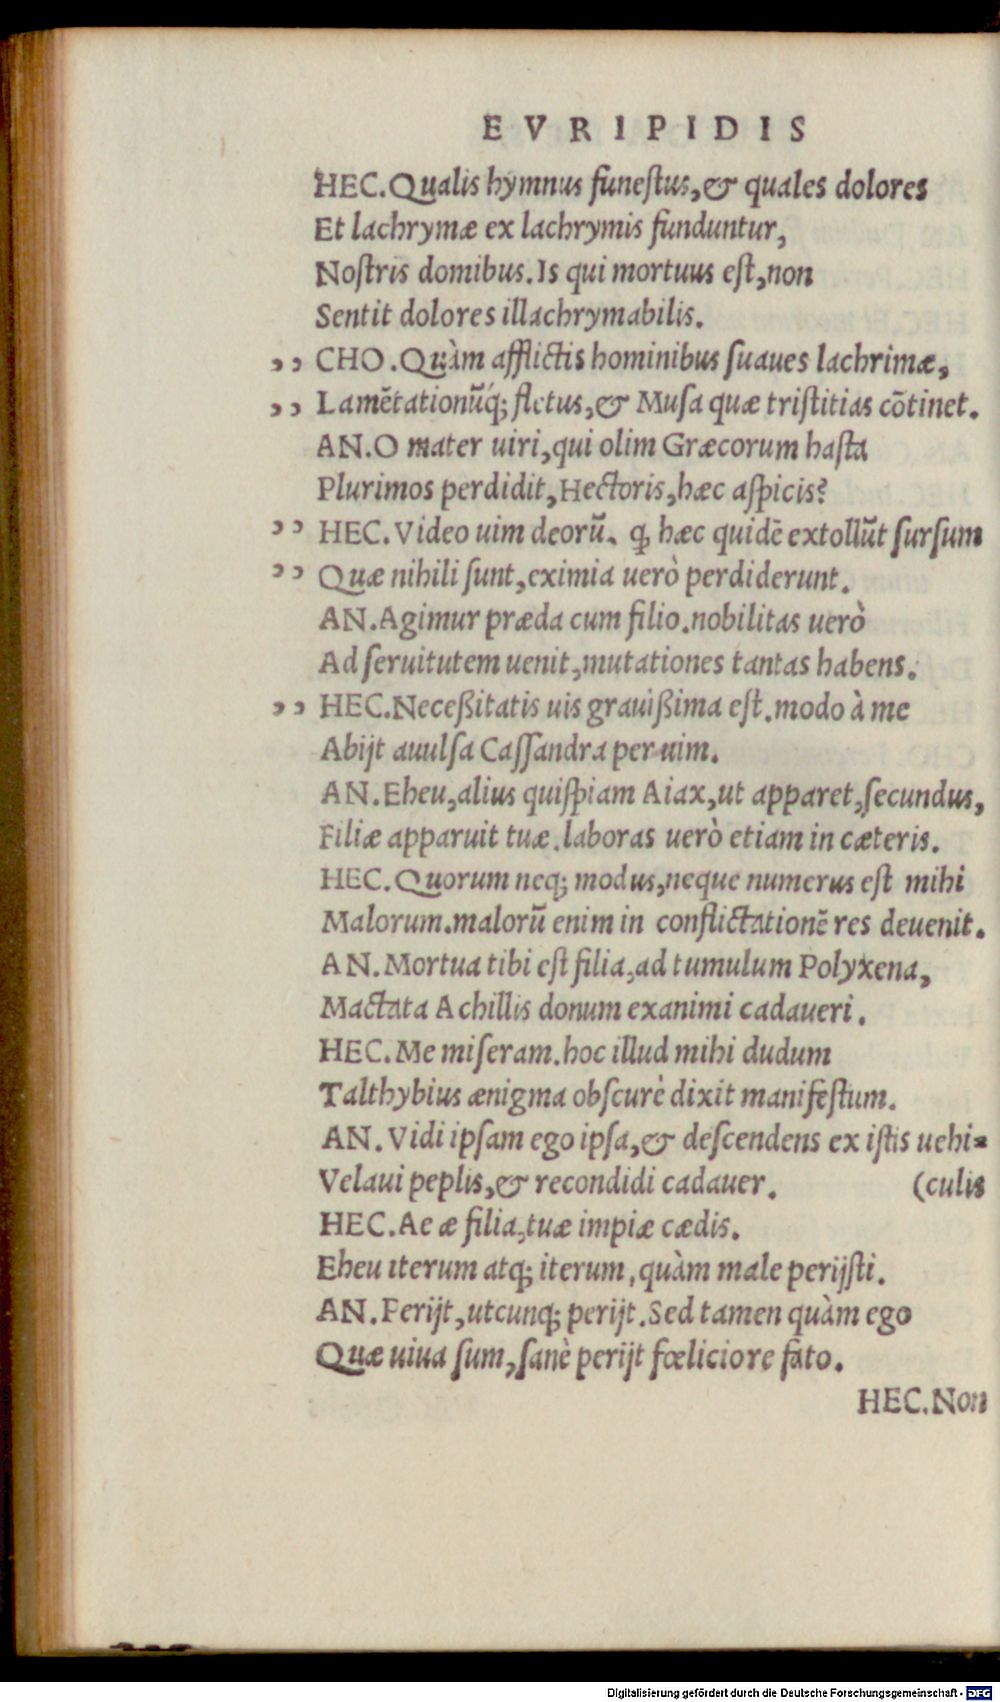 EVRIPIDIS
HEC. Qualis hymnus funeſtus, & quales dolores
Et lachrymæ ex lachrymis funduntur,
Noſtris domibus. Is qui mortuus eſt, non
Sentit dolores illachrymabilis.
,, CHO. Quàm afflictis hominibus ſuaues lachrimæ,
,, Lamētationūq́; fletus, & Muſa quæ triſtitias cōtinet.
AN. O mater uiri, qui olim Græcorum haſta
Plurimos perdidit, Hectoris, hæc aſpicis?
,, HEC. Video uim deorū. ꝙ hæc quidē extollūt ſurſum
,, Quæ nihili ſunt, eximia uerò perdiderunt.
AN. Agimur præda cum filio. nobilitas uerò
Ad ſeruitutem uenit, mutationes tantas habens.
,, HEC. Neceßitatis uis grauißima eſt. modo à me
Abijt auulſa Caſſandra per uim.
AN. Eheu, alius quiſpiam Aiax, ut apparet, ſecundus,
Filiæ apparuit tuæ. laboras uerò etiam in cæteris.
HEC. Quorum neq; modus, neque numerus eſt mihi
Malorum. malorū enim in conflictationē res deuenit.
AN. Mortua tibi eſt filia, ad tumulum Polyxena,
Mactata Achillis donum exanimi cadaueri.
HEC. Me miſeram. hoc illud mihi dudum
Talthybius ænigma obſcurè dixit manifeſtum.
AN. Vidi ipſam ego ipſa, & deſcendens ex iſtis uehi-
Velaui peplis, & recondidi cadauer. (culis
HEC. Ae æ filia, tuæ impiæ cædis.
Eheu iterum atq; iterum, quàm male perijſti.
AN. Perijt, utcunq; perijt. Sed tamen quàm ego
Quæ uiua ſum, ſanè perijt fœliciore fato.
HEC. Non
Digitalisierung gefördert durch die Deutsche Forschungsgemeinschaft - DFG